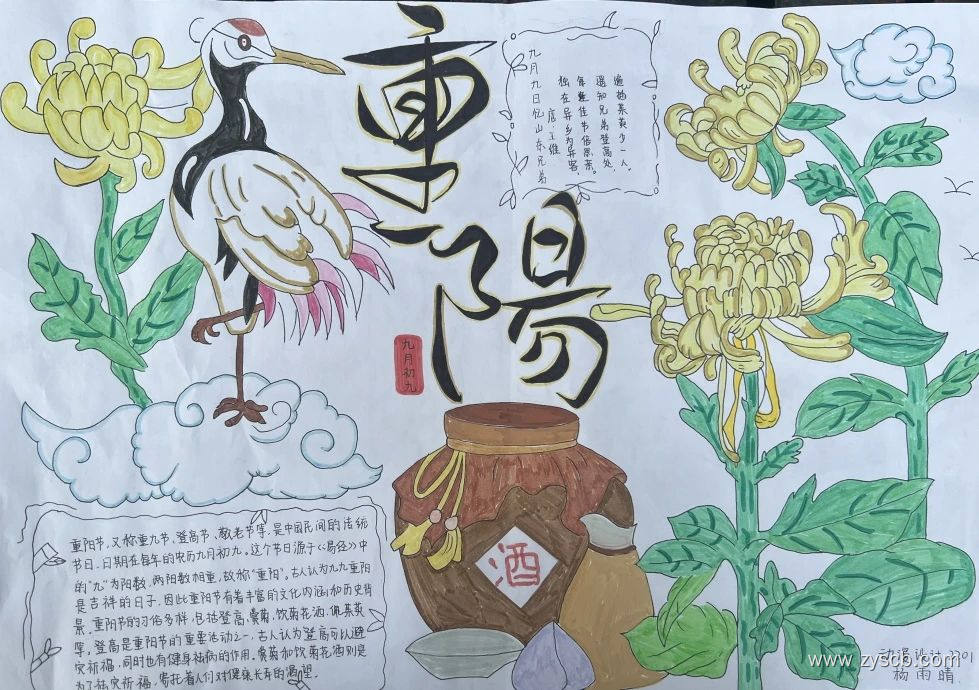 重
陽
九月初九
九月九日忆山东兄弟
唐·王维
独在异乡为异客，
每逢佳节倍思亲。
遥知兄弟登高处，
遍插茱萸少一人。
酒
重阳节，又称重九节，登高节，敬老节等，是中国民间的传统
节日，日期在每年的农历九月初九。这个节日源于《易经》中
的"九"为阳数，两阳数相重，故称"重阳"。古人认为九九重阳
是吉祥的日子，因此重阳节有着丰富的文化内涵和历史背
景。重阳节的习俗多样，包括登高，赏菊，饮菊花酒，佩茱萸
等。登高是重阳节的重要活动之一，古人认为登高可以避
灾祈福，同时也有健身祛病的作用。赏菊和饮菊花酒则是
为了祛灾祈福，寄托着人们对健康长寿的渴望。
动漫设计2201
杨雨晴
www.zyscb.com